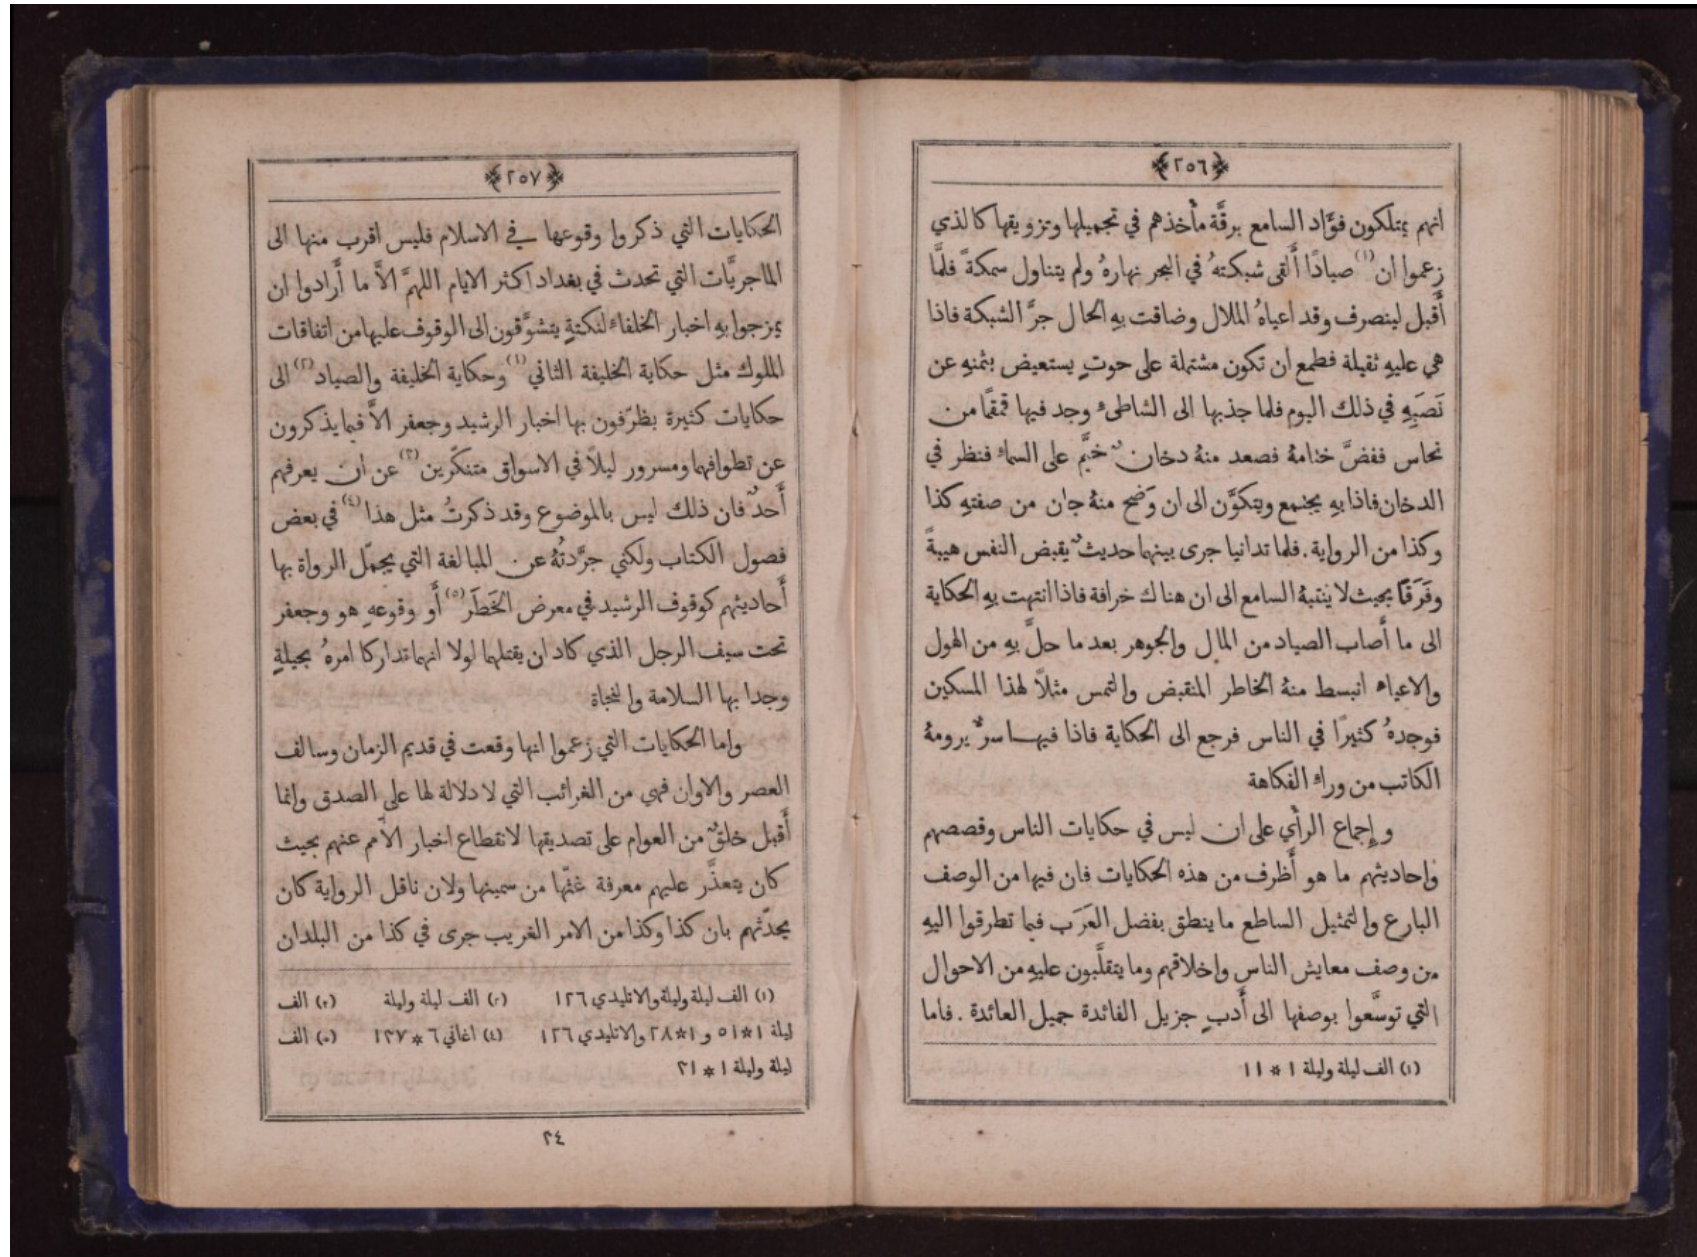 ﴿٢٥٦﴾
انهم يمتلكون فؤَاد السامع برقَّة مأْخذهم في تجميلها وتزويقها كالذي
زعموا ان (١) صيادًا أَلقى شبكتهُ في البحر نهارهُ ولم يتناول سمكةً فلمَّا
أَقبل لينصرف وقد اعياهُ الملال وضاقت بهِ الحال جرَّ الشبكة فاذا
هي عليهِ ثقيلة فطمع ان تكون مشتملة على حوتٍ يستعيض بثمنهِ عن
نَصَبِهِ في ذلك اليوم فلما جذبها الى الشاطىء وجد فيها قمقمًا من
نحاس ففضَّ ختامهُ فصعد منهُ دخانٌ خيَّم على السماء فنظر في
الدخان فاذا بهِ يجتمع ويتكوَّن الى ان وَضح منهُ جان من صفتهِ كذا
وكذا من الرواية . فلما تدانيا جرى بينهما حديثٌ يقبض النفس هيبةً
وفَرَقًا بحيث لا ينتبهُ السامع الى ان هناك خرافة فاذا انتهت بهِ الحكاية
الى ما أَصاب الصياد من المال والجوهر بعد ما حلَّ بهِ من الهول
والاعياء انبسط منهُ الخاطر المنقبض والتمس مثلاً لهذا المسكين
فوجدهُ كثيرًا في الناس فرجع الى الحكاية فاذا فيها سرٌّ يرومهُ
الكاتب من وراء الفكاهة
وإِجماع الرأْي على ان ليس في حكايات الناس وقصصهم
واحاديثهم ما هو أَظرف من هذه الحكايات فان فيها من الوصف
البارع والتمثيل الساطع ما ينطق بفضل العَرَب فيما تطرقوا اليهِ
من وصف معايش الناس واخلاقهم وما يتقلَّبون عليهِ من الاحوال
التي توسَّعوا بوصفها الى أَدبٍ جزيل الفائدة جميل العائدة . فاما
(١) الف ليلة وليلة ١ * ١١
﴿٢٥٧﴾
الحكايات التي ذكروا وقوعها في الاسلام فليس اقرب منها الى
الماجريَّات التي تحدث في بغداد اكثر الايام اللهمَّ الاَّ ما أَرادوا ان
يمزجوا بهِ اخبار الخلفاء لنكتةٍ يتشوَّقون الى الوقوف عليها من اتفاقات
الملوك مثل حكاية الخليفة الثاني (١) وحكاية الخليفة والصياد (٢) الى
حكايات كثيرة يظرّفون بها اخبار الرشيد وجعفر الاَّ فيما يذكرون
عن تطوافهما ومسرور ليلاً في الاسواق متنكّرين (٣) عن ان يعرفهم
أَحدٌ فان ذلك ليس بالموضوع وقد ذكرتُ مثل هذا (٤) في بعض
فصول الكتاب ولكني جرَّدتُهُ عن المبالغة التي يجمّل الرواة بها
أَحاديثهم كوقوف الرشيد في معرض الخَطَر (٥) أَو وقوعهِ هو وجعفر
تحت سيف الرجل الذي كاد ان يقتلهما لولا انهما تداركا امرهُ بحيلةٍ
وجدا بها السلامة والنجاة
واما الحكايات التي زعموا انها وقعت في قديم الزمان وسالف
العصر والاوان فهي من الغرائب التي لا دلالة لها على الصدق وانما
أَقبل خلقٌ من العوام على تصديقها لانقطاع اخبار الأمم عنهم بحيث
كان يتعذَّر عليهم معرفة غثّها من سمينها ولان ناقل الرواية كان
يحدّثهم بان كذا وكذا من الامر الغريب جرى في كذا من البلدان
(١) الف ليلة وليلة والاتليدي ١٢٦ (٢) الف ليلة وليلة (٣) الف
ليلة ١*٥١ و ١*٢٨ والاتليدي ١٢٦ (٤) اغاني ٦ * ١٣٧ (٥) الف
ليلة وليلة ١ * ٣١
٣٤